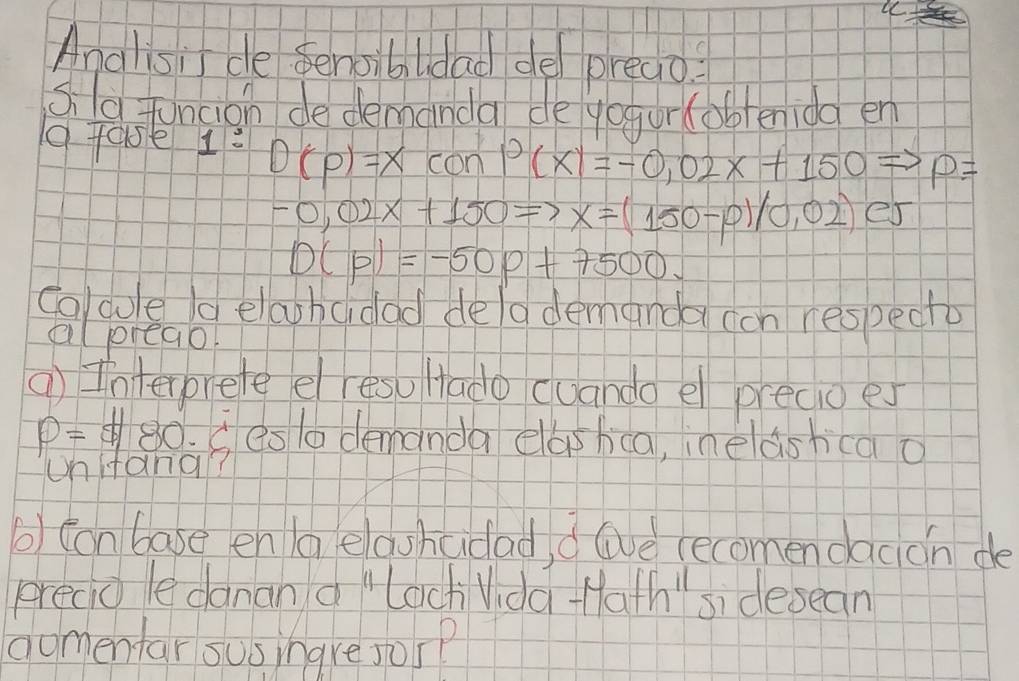 Analisis de sensibilidad del precio:
Si la función de demanda de yogur (obtenida en
la fase 1: D(p)=x con P(x)=-0,02x+150 => p=
-0,02x+150 => x=(150-p)/0,02) es
D(p)=-50p+7500.
Calcule la elasticidad de la demanda con respecto
al precio.
a) Interprete el resultado cuando el precio es
p=$80. ¿es la demanda elástica, inelástica o
unitaria?
b) Con base en la elasticidad, ¿Qué recomendación de
precio le darían a "LactiVida-Math" si desean
aumentar sus ingresos?